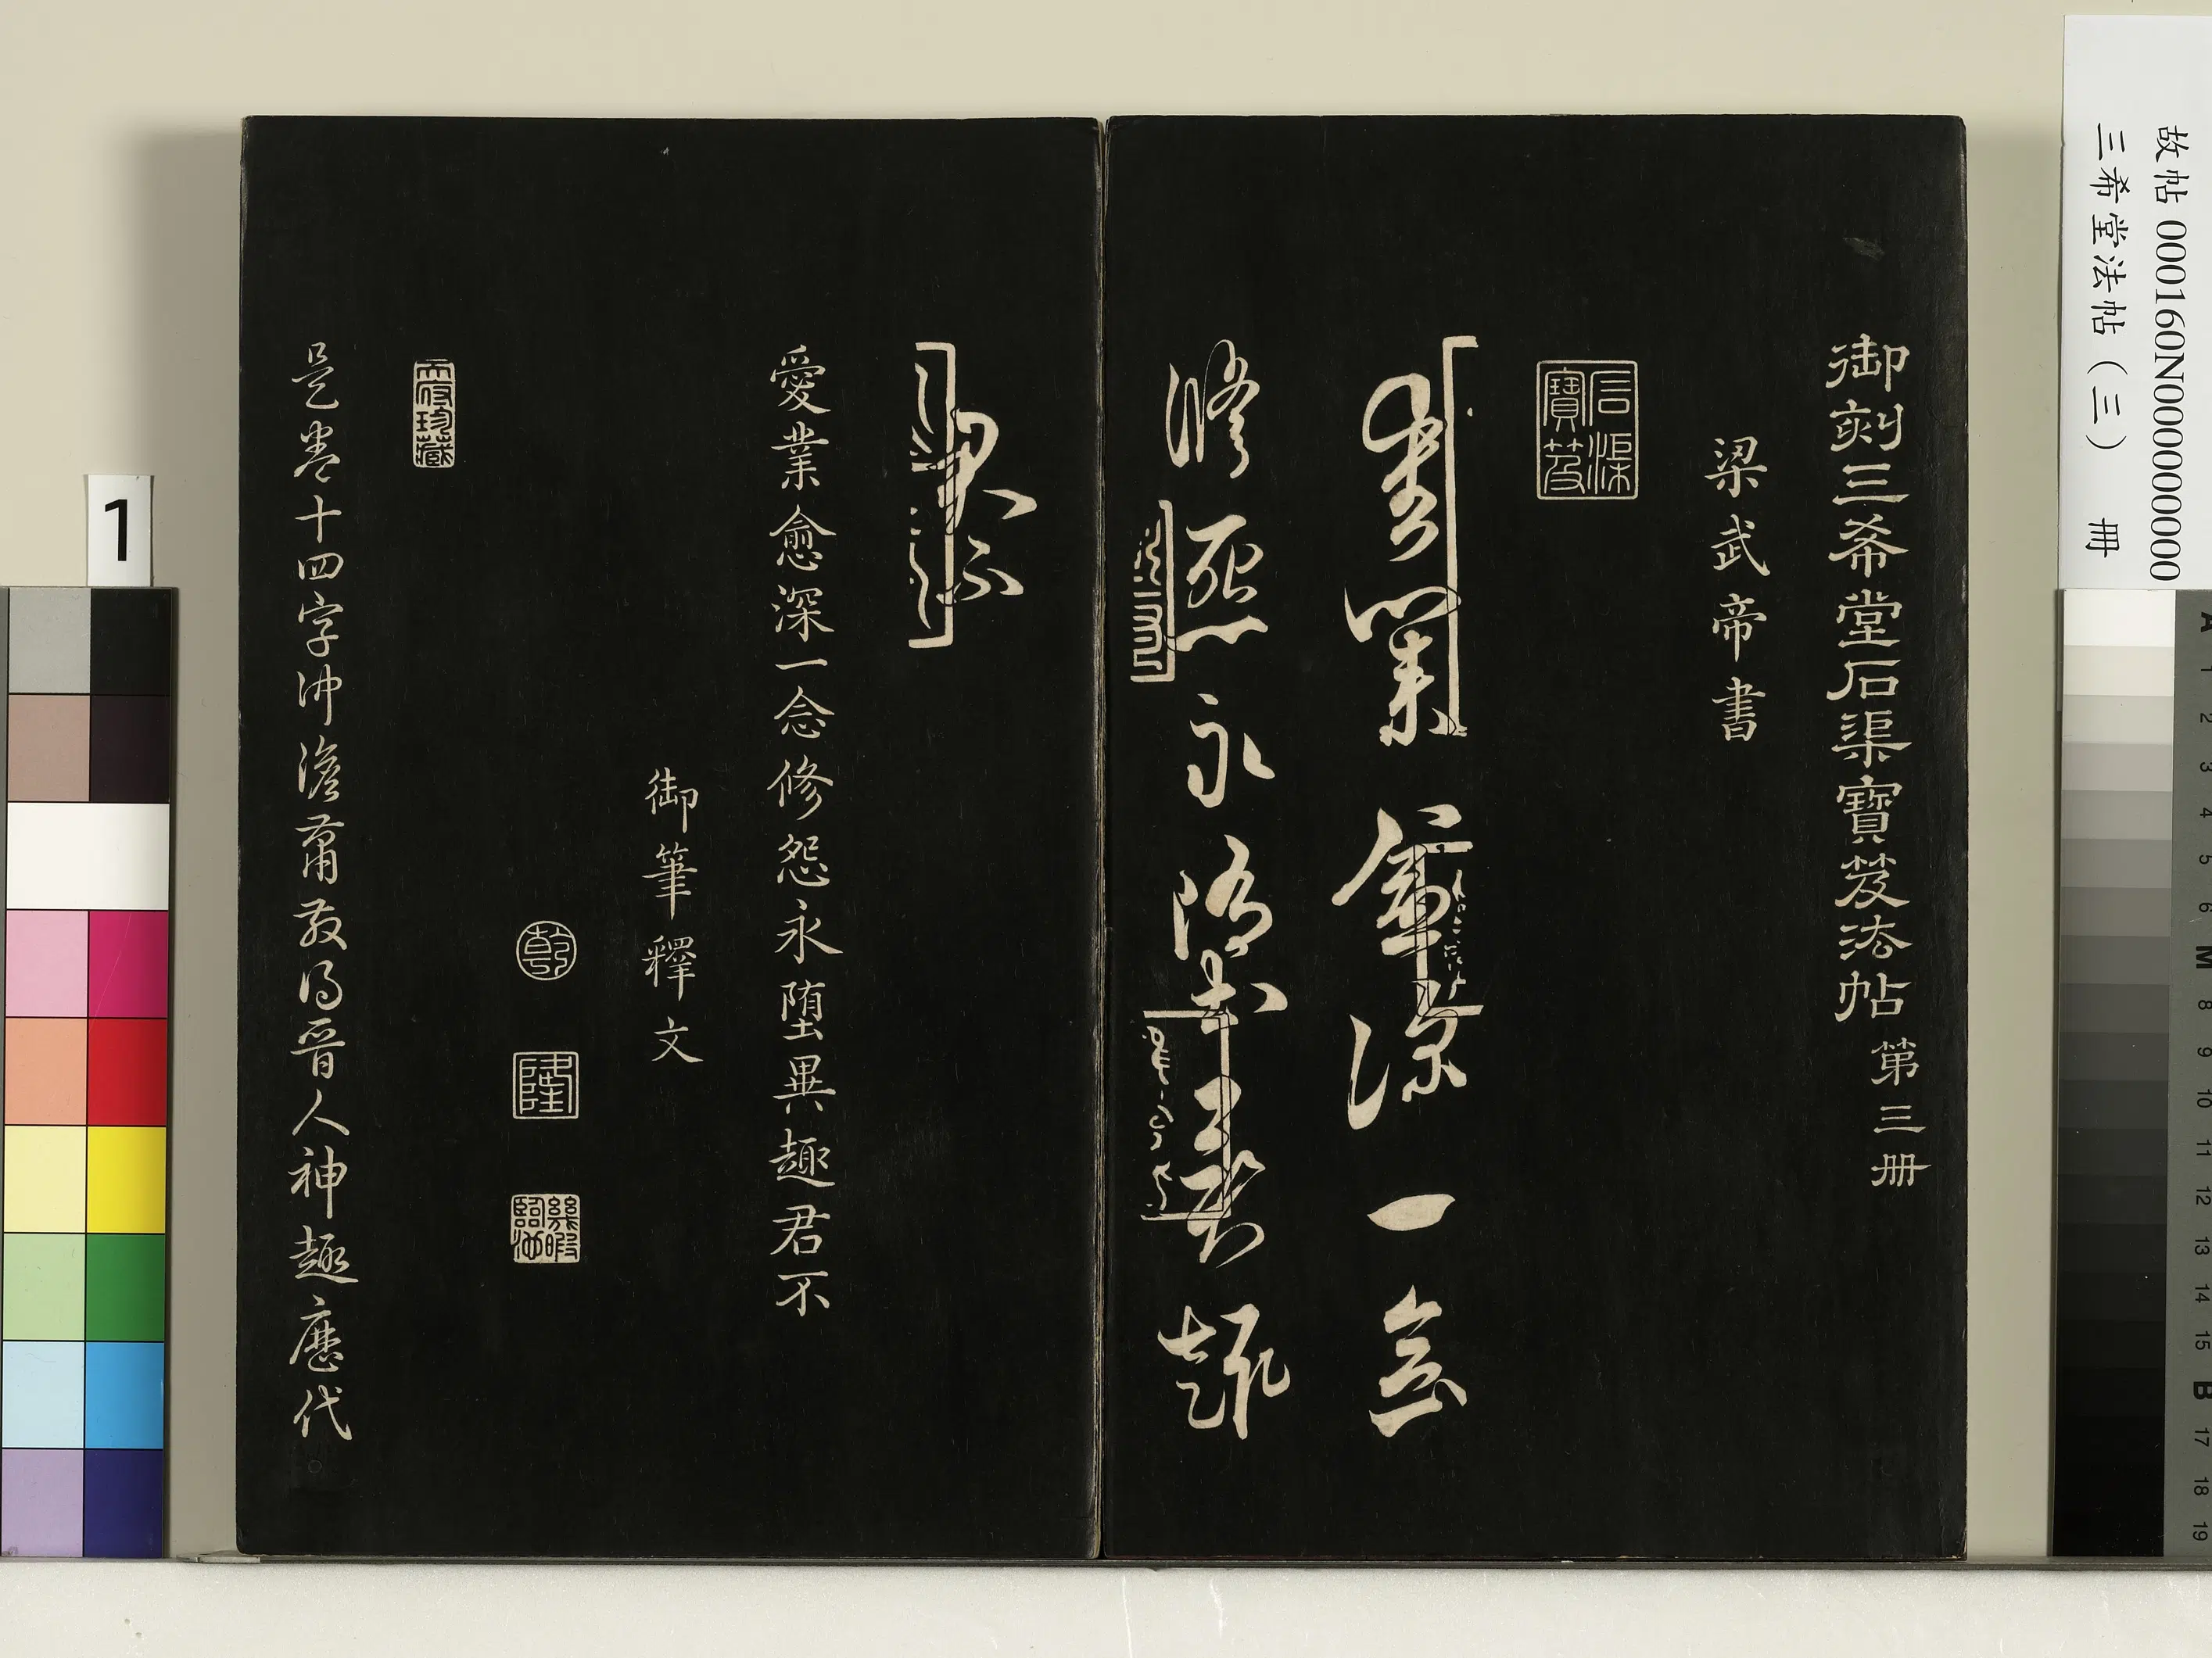 故帖 000160N000000000
三希堂法帖（三） 冊
御刻三希堂石渠寶笈法帖 第三冊
梁武帝書
石渠寶笈
愛業愈深一念
修惌永墮異趣
君不
愛業愈深一念修怨永墮異趣君不
御筆釋文
乾
隆
幾暇臨池
是卷十四字沖澹蕭散得晉人神趣歷代
1
A 1 2 3 4 5 6 M 8 9 10 11 12 13 14 15 B 17 18 19